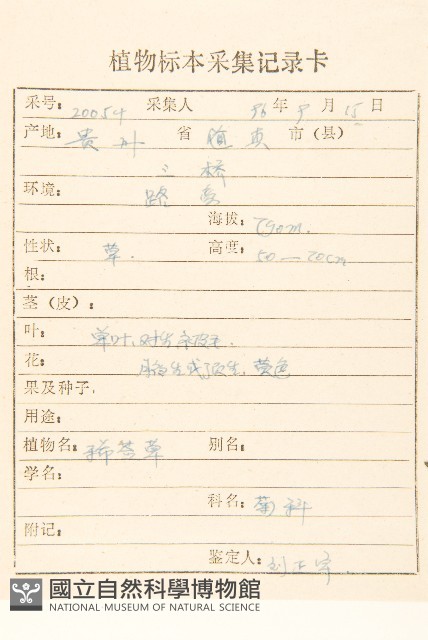 植物标本采集记录卡
采号: 20054 采集人 96年9月15日
产地: 贵州 省 道真 市（县）
三桥
环境: 路旁
海拔: m.
性状: 草. 高度: 50—70cm
根:
茎（皮）:
叶: 单叶,对生,
花: 腋生或顶生,黄色
果及种子:
用途:
植物名: 稀签草 别名:
学名:
科名: 菊科
附记:
鉴定人: 刘正宇.
國立自然科學博物館
NATIONAL MUSEUM OF NATURAL SCIENCE